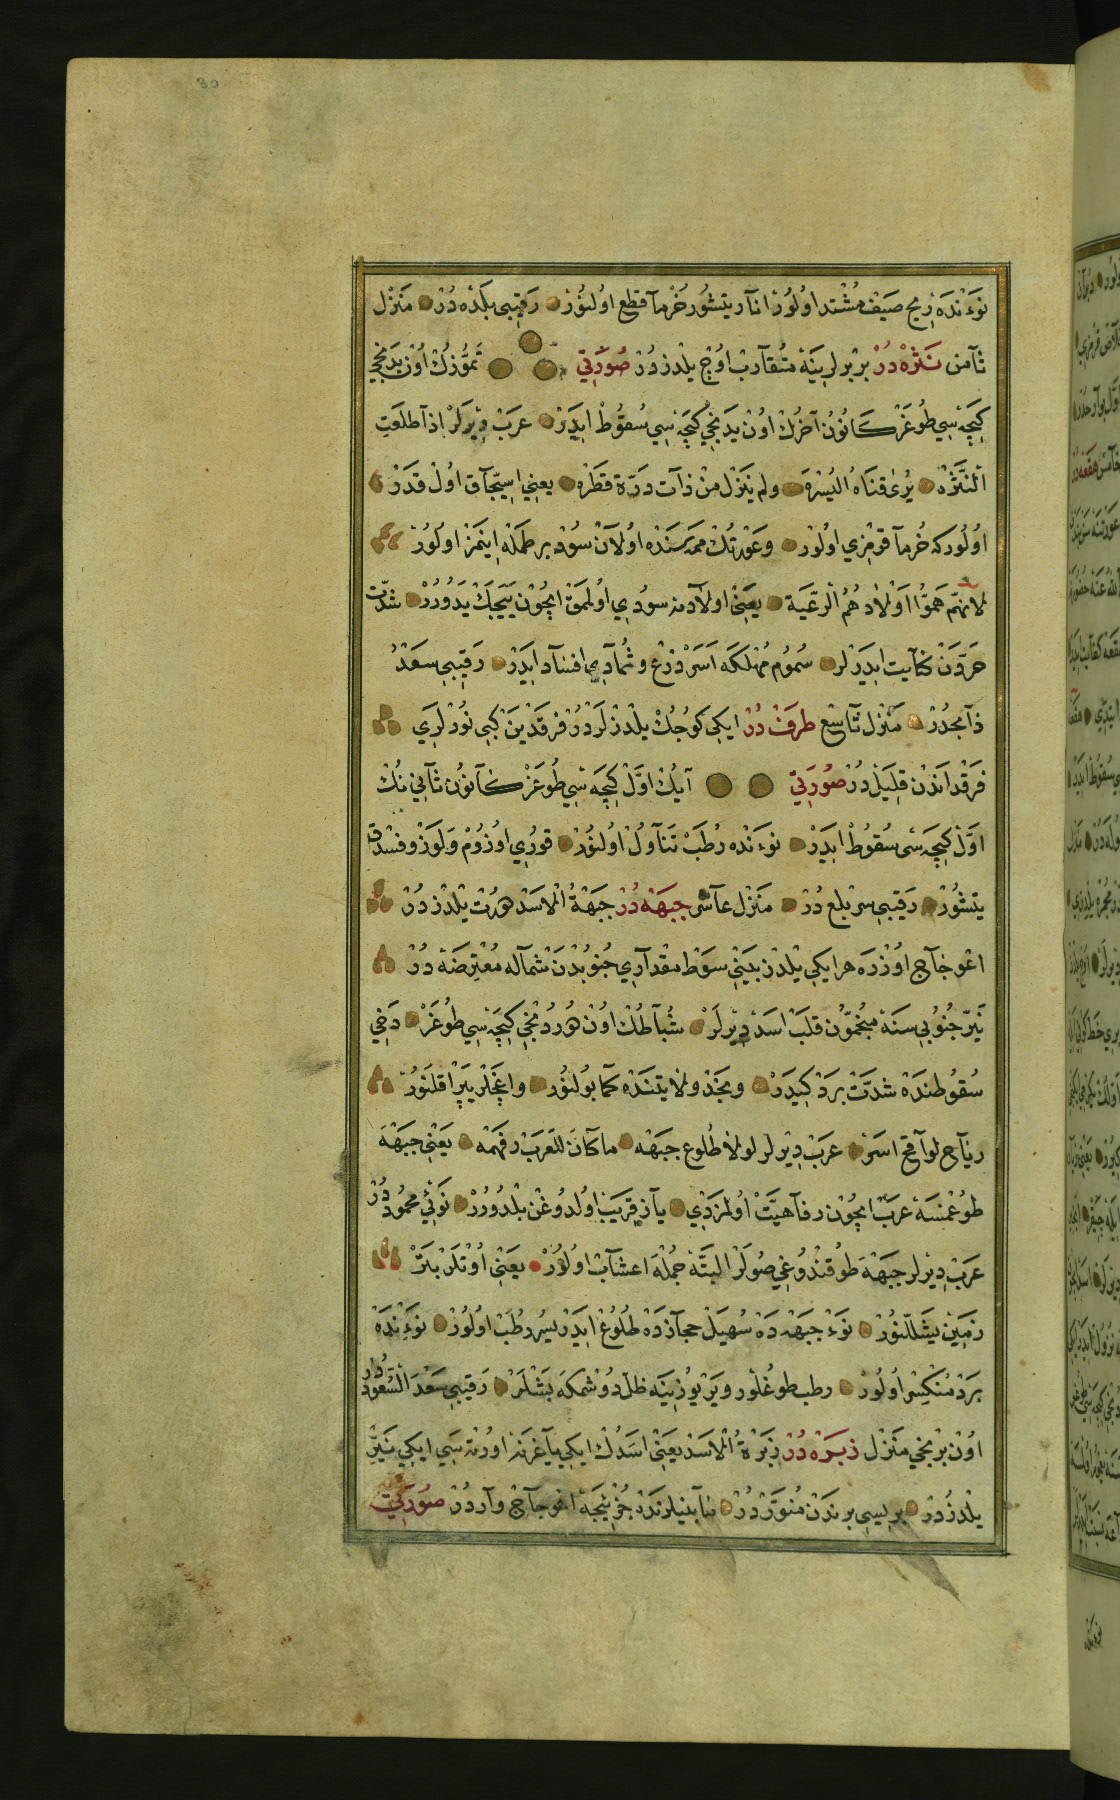 30
نوءنده ريح صيف مشتد اولور انار يتشور خرما قطع اولنور رقيبى بلده در منزل
ثامن نثره در بربرلرينه متقارب اوچ يلدزدر صورتى تموزك اون يدنجى
كيجه سى طوغر كانون آخرك اون يدنجى كيجه سى سقوط ايدر عرب ديرلر اذا طلعت
النثره يرى قناه اليسره ولم ينزل من ذات درة قطره يعنى اول قدر
اولور كه خرما قرمزى اولور وعورتك ممه سنده اولان سود بر طمله اينمز اولور
لانهم هموا اولادهم الرعية يعنى اولادنه سودى اولمق ايچون ييجك يدورر شدت
حردن كنايت ايدرلر سموم مهلكه اسر زرع وثمارى افساد ايدر رقيبى سعد
ذابحدر منزل تاسع طرف در ايكى كوچك يلدزلردر فرقدين كبى نورلرى
فرقداندن قليل در صورتى آيك اول كيجه سى طوغر كانون ثانى نك
اول كيجه سى سقوط ايدر نوءنده رطب تناول اولنور قورى اوزوم ولوز وفستق
يتشور رقيبى سر بلع در منزل عاشر جبهه در جبهة الاسد درت يلدزدر
اغو خاج اوزره هر ايكى يلدز بينى سوط مقدارى جنوبدن شماله معترضه در
نير جنوبى سنه منجمون قلب اسد ديرلر شباطك اون دردنجى كيجه سى طوغر دخى
سقوطنده شدت برد كيدر ونجد ولايتنده كما بولنور واغچلر يپراقلنور
رياح لواقح اسر عرب ديرلر لولا طلوع جبهه ماكان للعرب رفهه يعنى جبهه
طوغمسه عرب ايچون رفاهيت اولمزدى ياز قريب اولدوغن بلدورر نوئى محموددر
عرب ديرلر جبهه طوقندوغى صولر البته جمله اعشاب اولور يعنى اوتلر بتر
زمين يشللنور نوء جبهه ده سهيل حجازده طلوع ايدر بسر رطب اولور نوءنده
برد منكسر اولور رطب طوغلور ويريوزينه ظل دوشمكه بشلر رقيبى سعد السعوددر
اون برنجى منزل زبره در زبرة الاسد يعنى اسدك ايكى ياغرنه اورته سى ايكى نير
يلدزدر بريسى برندن منوردر مابينلرنده اغو جاج واردر صورتى